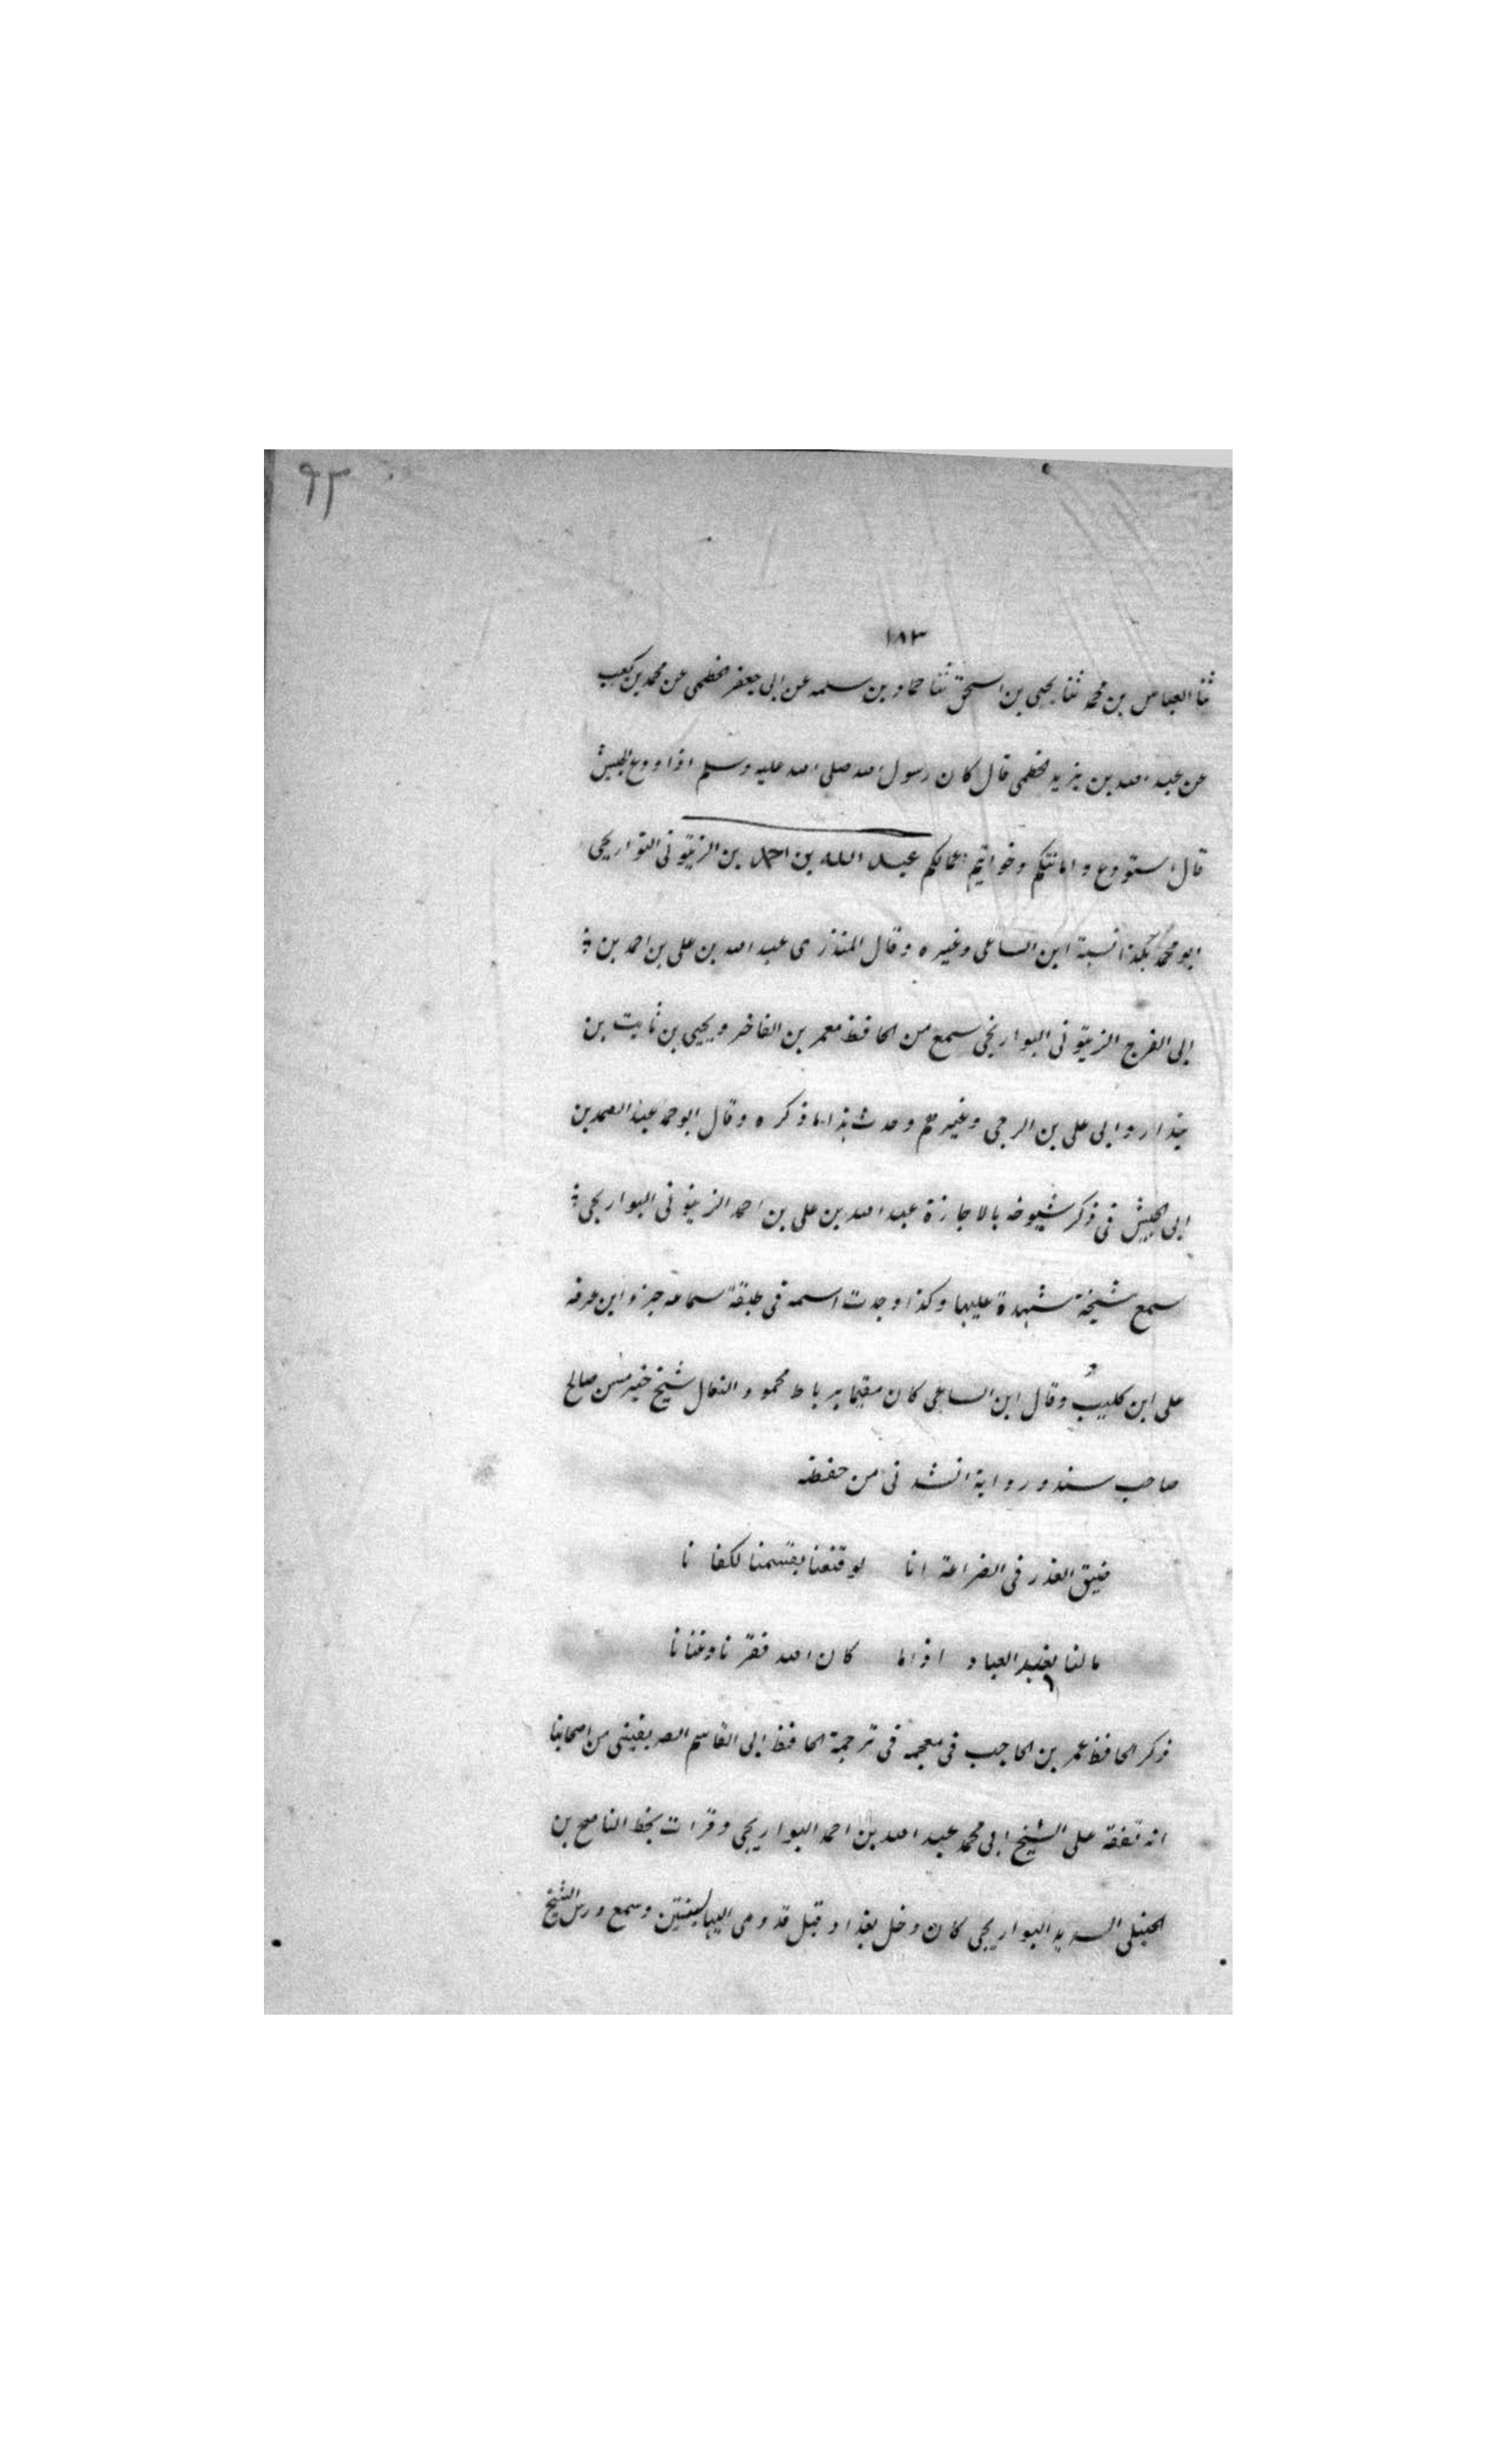 ٩٣
١٨٣
ثنا العباس بن محمد ثنا يحيى بن اسحق ثنا حماد بن سلمه عن ابى جعفر الخطمى عن محمد بن كعب
عن عبد الله بن يزيد الخطمى قال كان رسول الله صلى الله عليه وسلم اذا ودع الجيش
قال استودع وامانتكم وخواتيم اعمالكم عبد الله بن احمد بن الزيتونى التواريحى
ابو محمد هكذا نسبة ابن الساعى وغيره وقال المنذرى عبد الله بن على بن احمد بن
ابى الفرج الزيتونى البواريخى سمع من الحافظ معمر بن الفاخر ويحيى بن ثابت بن
بندار وابى على بن الرحبى وغيرهم وحدث هذا ما ذكره وقال ابو احمد عبد الصمد بن
ابى الجيش فى ذكر شيوخه بالاجازة عبد الله بن على بن احمد الزيتونى البواريجى
سمع شيخة شهدة عليها وكذا وجدت اسمه فى طبقة سماعه جزو ابن عرفه
على ابن كليب وقال ابن الساعى كان مقيما برباط محمود النعال شيخ خير مسن صالح
صاحب سند ورواية انشدنى من حفظه
ضيق العذر فى الضراعة انا لو قنعنا بقسمنا لكفانا
مالنا نعبد العباد اذا ما كان الله فقرنا وغنانا
ذكر الحافظ عمر بن الحاجب فى معجمه فى ترجمة الحافظ ابى القاسم الصريفينى من اصحابنا
انه تفقه على الشيخ ابى محمد عبد الله بن احمد البواريجى وقرات بخط الناصح بن
الحنبلى البواريجى كان دخل بغداد قبل قدومى اليها بسنتين وسمع درس الشيخ